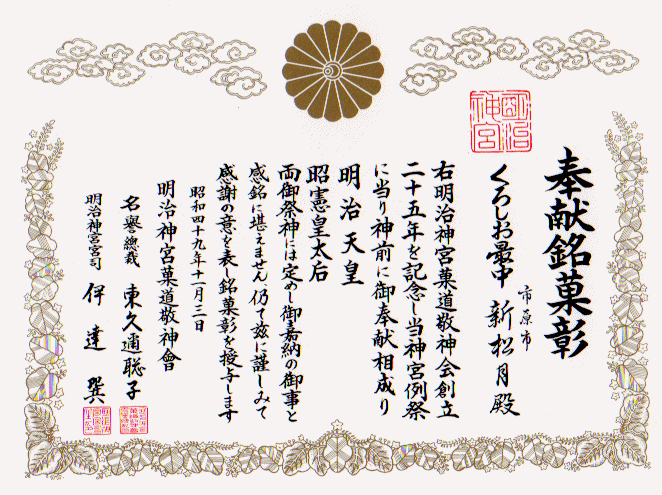 奉献銘菓彰
市原市
くろしお最中 新松月殿
右明治神宮菓道敬神会創立
二十五年を記念し当神宮例祭
に当り神前に御奉献相成り
明治天皇
昭憲皇太后
両御祭神には定めし御嘉納の御事と
感銘に堪えません仍て玆に謹しみて
感謝の意を表し銘菓彰を授与します
昭和四十九年十一月三日
明治神宮菓道敬神會
名誉總裁 東久邇聡子
明治神宮宮司 伊達巽
明治神宮